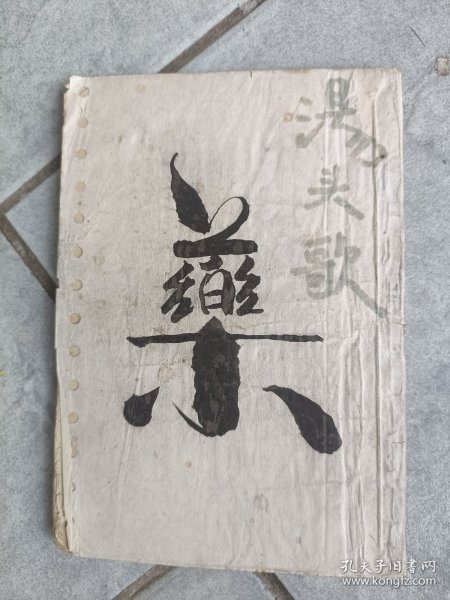 湯头歌
藥
孔夫子旧书网
www.kongfz.com